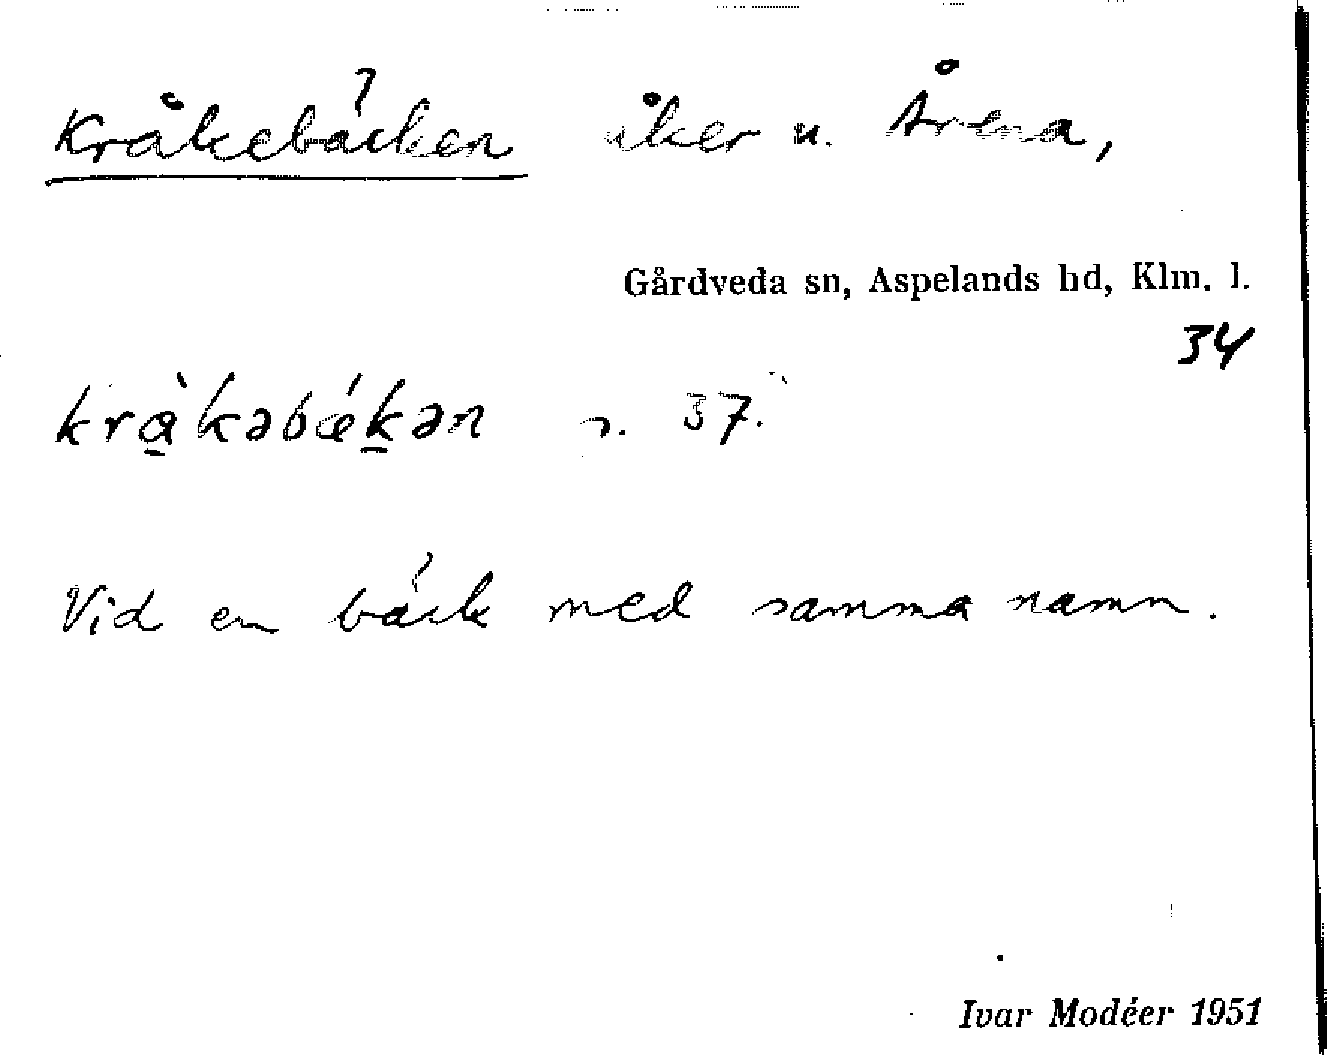 Kråkebäcken åker u. Årena,
Gårdveda sn, Aspelands hd, Klm. l.
34
krå̀kəbǽkən s. 37.
Vid en bäck med samma namn.
Ivar Modéer 1951